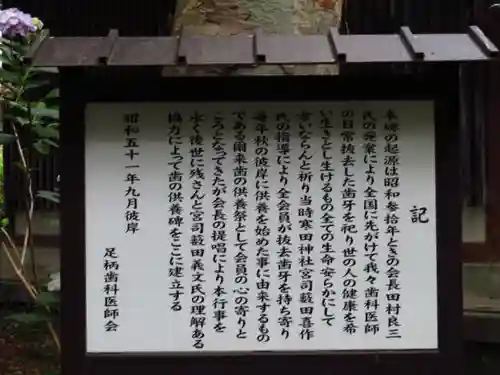 記
本碑の起源は昭和参拾年ときの会長田村良三
氏の発案により全国に先がけて我々歯科医師
の日常抜去した歯牙を祀り世の人の健康を希
い生きとし生けるもの全ての生命安らかにして
幸いならんと祈り当時寒田神社宮司藪田喜作
氏の指導により全会員が抜去歯牙を持ち寄り
毎年秋の彼岸に供養を始めた事に由来するもの
である爾来歯の供養祭として会員の心の寄りと
ころとなってきたが会長の提唱により本行事を
永く後世に残さんと宮司藪田義文氏の理解ある
協力によって歯の供養碑をここに建立する
昭和五十一年九月彼岸
足柄歯科医師会